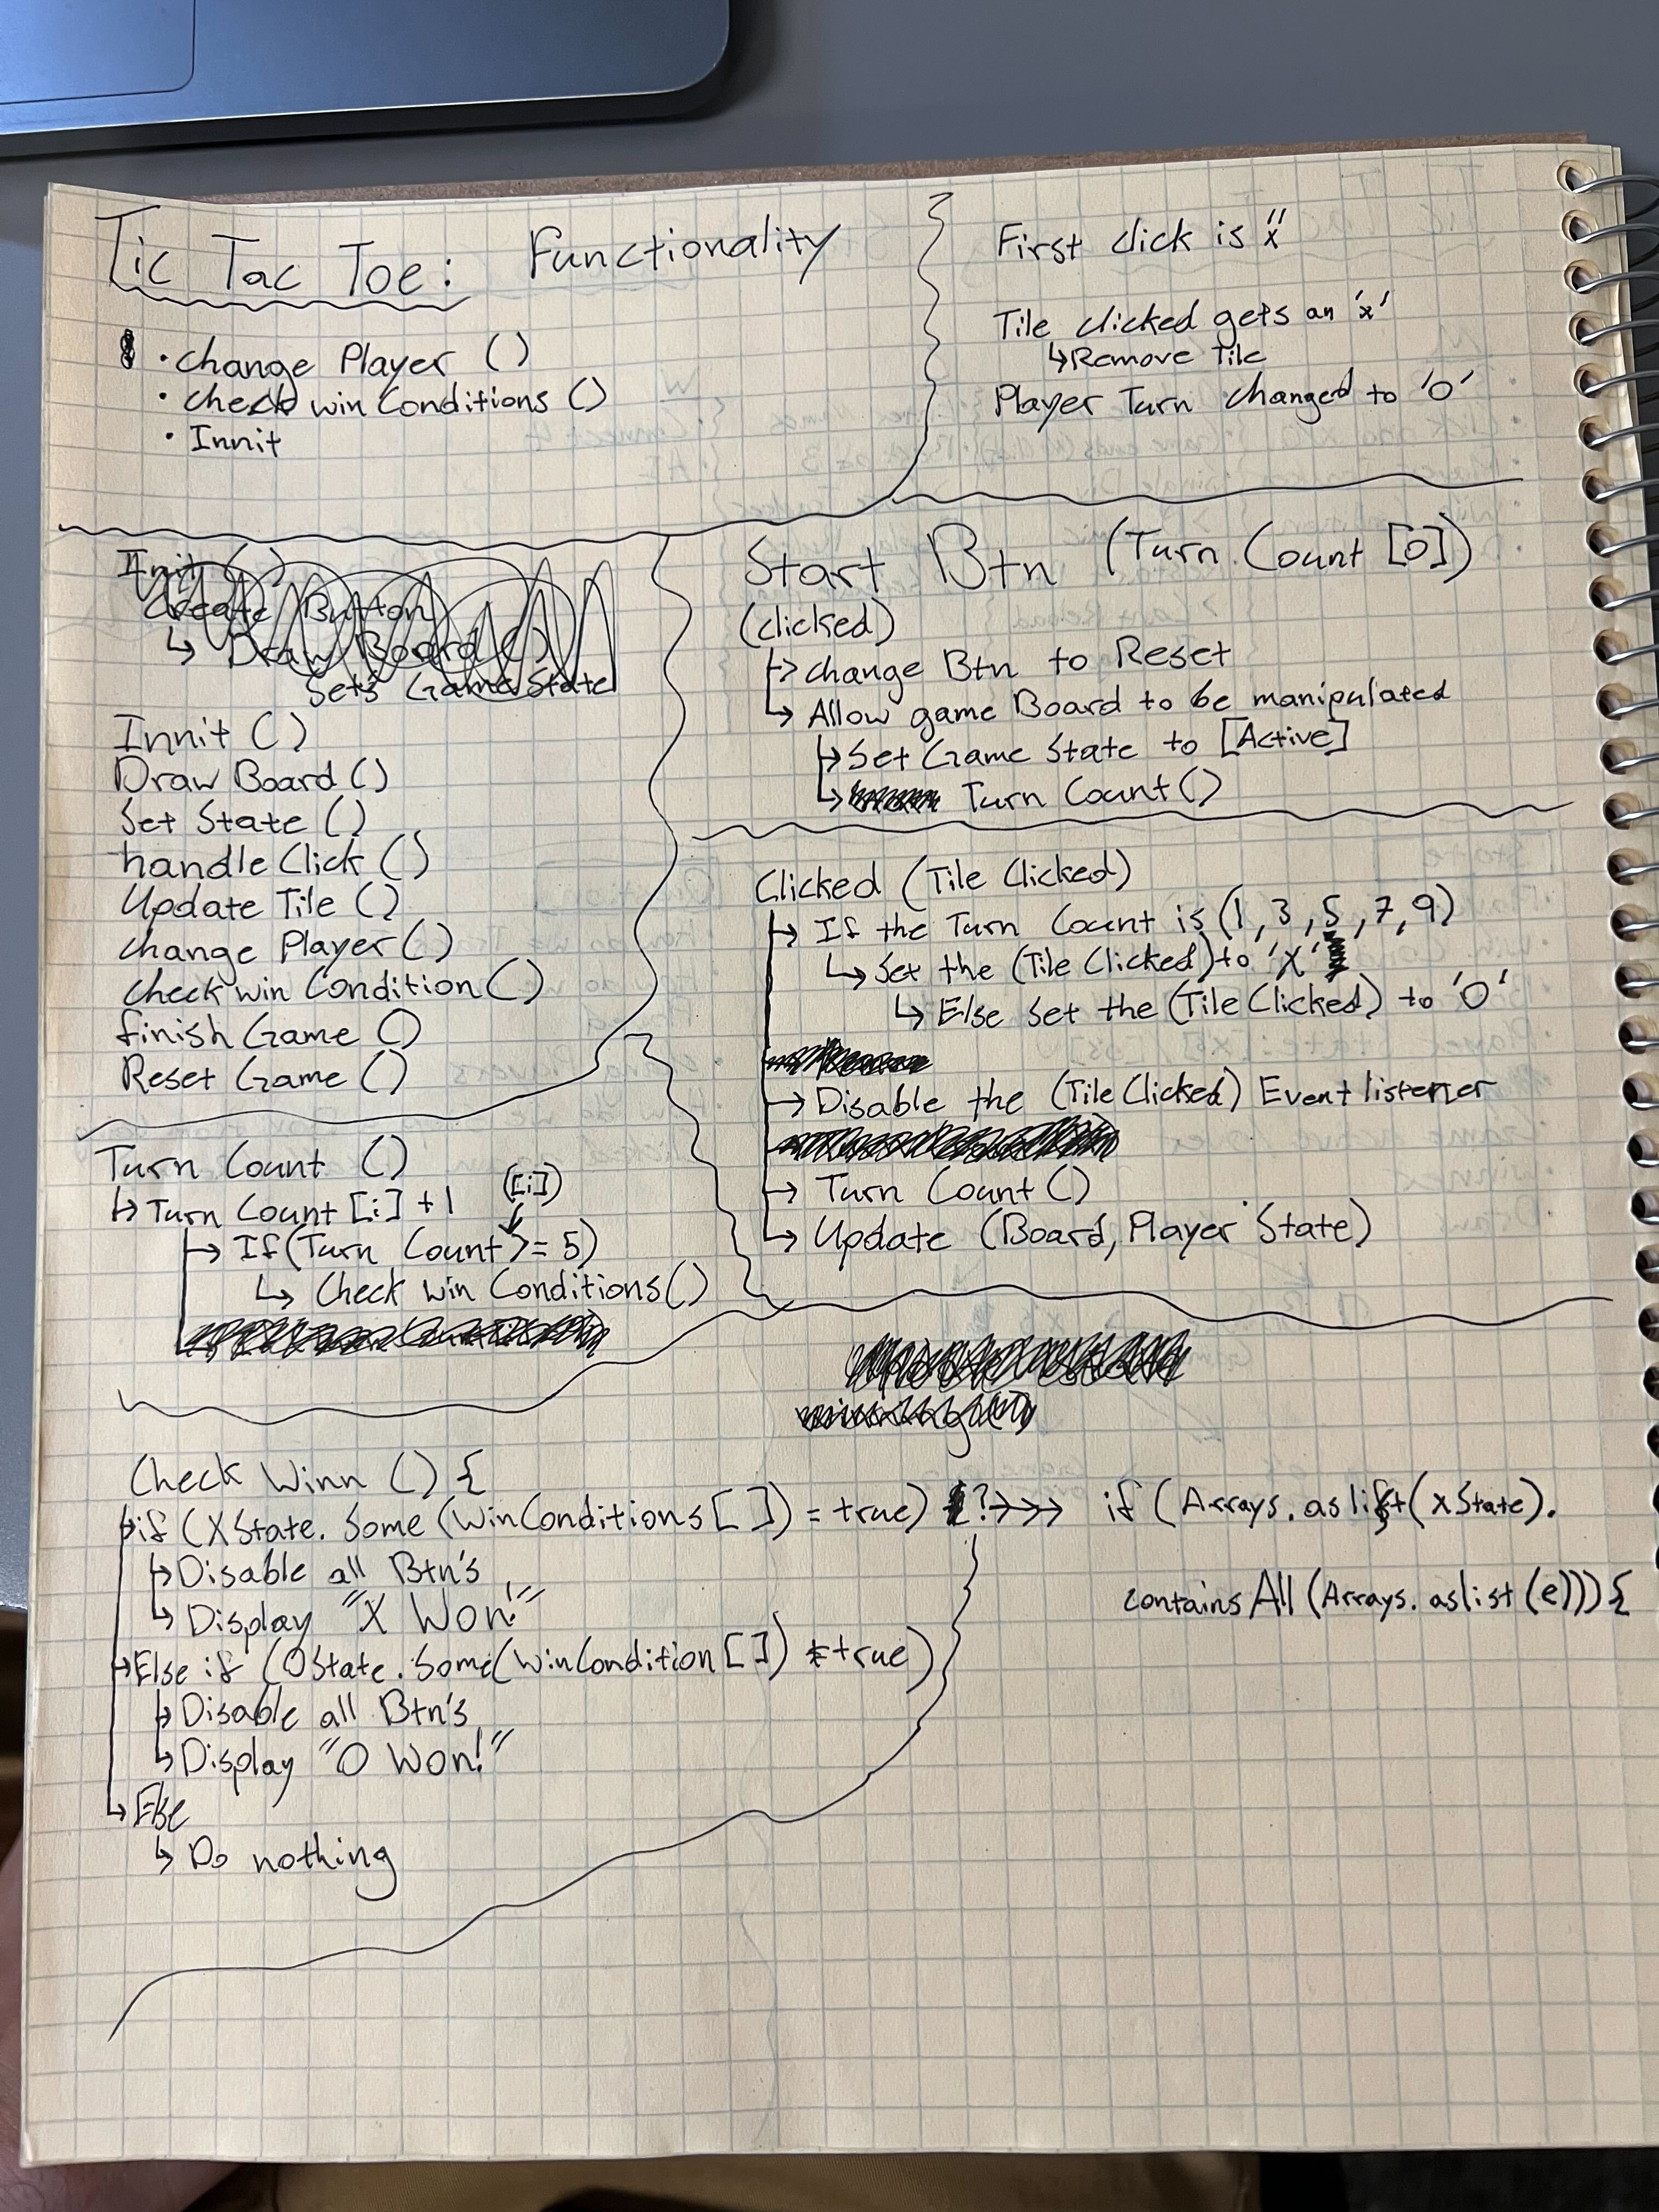 Tic Tac Toe: Functionality
• change Player ()
• check win Conditions ()
• Innit
First click is "x
Tile clicked gets an 'x'
↳Remove Tile
Player Turn changed to 'O'
Innit ()
Create Button
↳ Draw Board ()
Sets Game State
Innit ()
Draw Board ()
Set State ()
handle Click ()
Update Tile ()
change Player ()
check win Condition ()
finish Game ()
Reset Game ()
Start Btn (Turn Count [0])
(clicked)
↳ change Btn to Reset
↳ Allow game Board to be manipulated
↳ Set Game State to [Active]
↳ Turn Count ()
Clicked (Tile Clicked)
↳ If the Turn Count is (1, 3, 5, 7, 9)
↳ Set the (Tile Clicked) to 'X'
↳ Else set the (Tile Clicked) to 'O'
→ Disable the (Tile Clicked) Event listener
→ Turn Count ()
↳ Update (Board, Player State)
Turn Count ()
↳ Turn Count [i] + 1
([i])
→ If (Turn Count >= 5)
↳ Check win Conditions ()
Check Winn () {
if (XState. Some (WinConditions [ ]) = true) {?→>> if (Arrays. as list (xState).
contains All (Arrays. aslist (e))) {
↳ Disable all Btn's
↳ Display "X Won!"
↳ Else if (OState. Some (WinCondition [ ]) = true)
↳ Disable all Btn's
↳ Display "O Won!"
↳ Else
↳ Do nothing